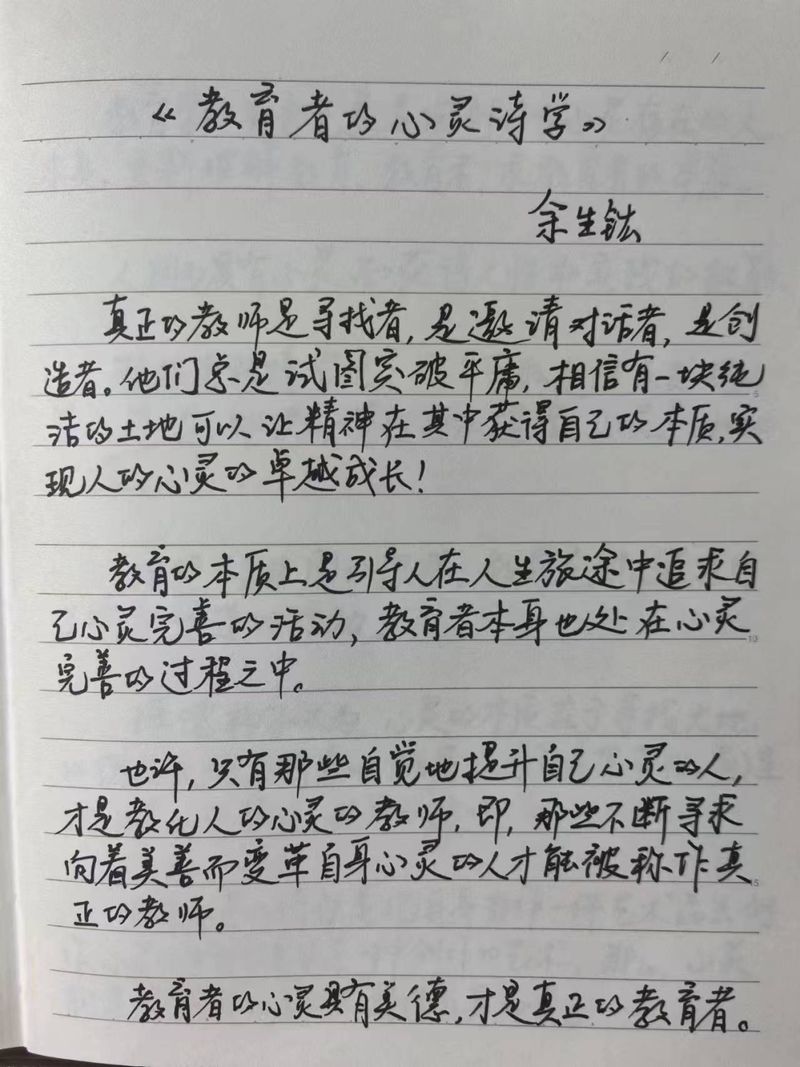 《教育者的心灵诗学》
余生鈜
真正的教师是寻找者，是邀请对话者，是创
造者。他们总是试图突破平庸，相信有一块纯
洁的土地可以让精神在其中获得自己的本质，实
现人的心灵的卓越成长！
教育的本质上是引导人在人生旅途中追求自
己心灵完善的活动，教育者本身也处在心灵
完善的过程之中。
也许，只有那些自觉地提升自己心灵的人，
才是教化人的心灵的教师，即，那些不断寻求
向着美善而变革自身心灵的人才能被称作真
正的教师。
教育者的心灵具有美德，才是真正的教育者。